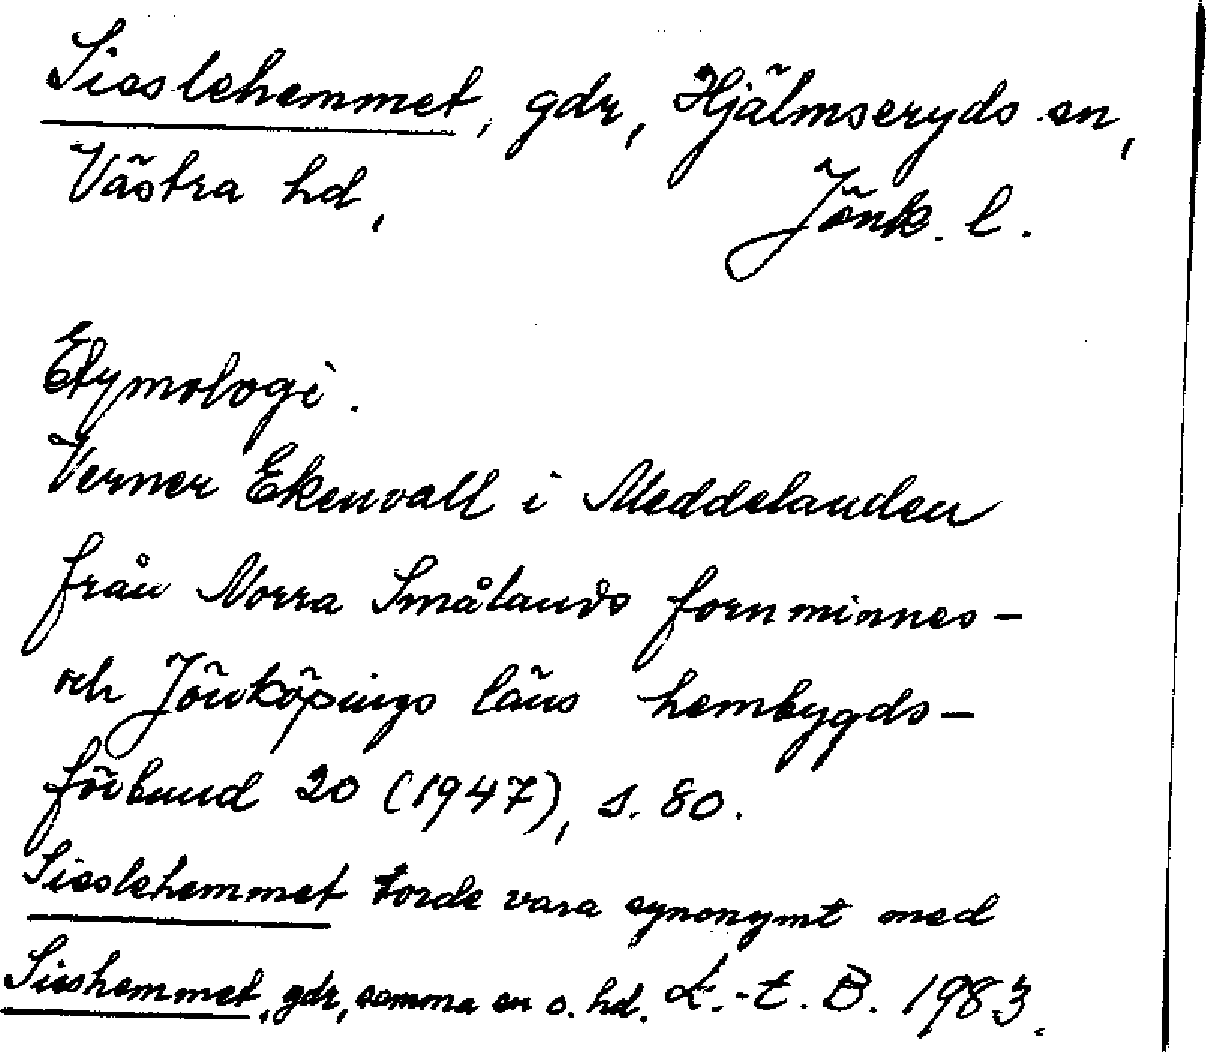 Sieslehemmet, gdr, Hjälmseryds sn,
Västra hd, Jönk. l.
Etymologi.
Verner Ekenvall i Meddelanden
från Norra Smålands fornminnes-
och Jönköpings läns hembygds-
förbund 20 (1947), s. 80.
Sieslehemmet torde vara synonymt med
Sieshemmet, gdr, samma sn o. hd. L.-t. B. 1983.